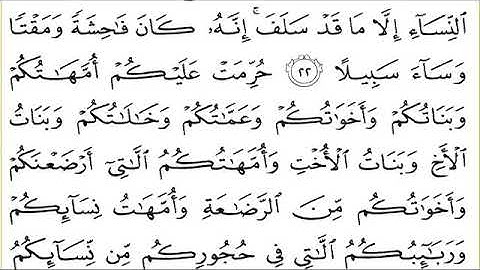 ٱلنِّسَآءِ إِلَّا مَا قَدۡ سَلَفَۚ إِنَّهُۥ كَانَ فَٰحِشَةٗ وَمَقۡتٗا
وَسَآءَ سَبِيلًا ٢٢ حُرِّمَتۡ عَلَيۡكُمۡ أُمَّهَٰتُكُمۡ
وَبَنَاتُكُمۡ وَأَخَوَٰتُكُمۡ وَعَمَّٰتُكُمۡ وَخَٰلَٰتُكُمۡ وَبَنَاتُ
ٱلۡأَخِ وَبَنَاتُ ٱلۡأُخۡتِ وَأُمَّهَٰتُكُمُ ٱلَّٰتِيٓ أَرۡضَعۡنَكُمۡ
وَأَخَوَٰتُكُم مِّنَ ٱلرَّضَٰعَةِ وَأُمَّهَٰتُ نِسَآئِكُمۡ
وَرَبَٰٓئِبُكُمُ ٱلَّٰتِي فِي حُجُورِكُم مِّن نِّسَآئِكُمُ